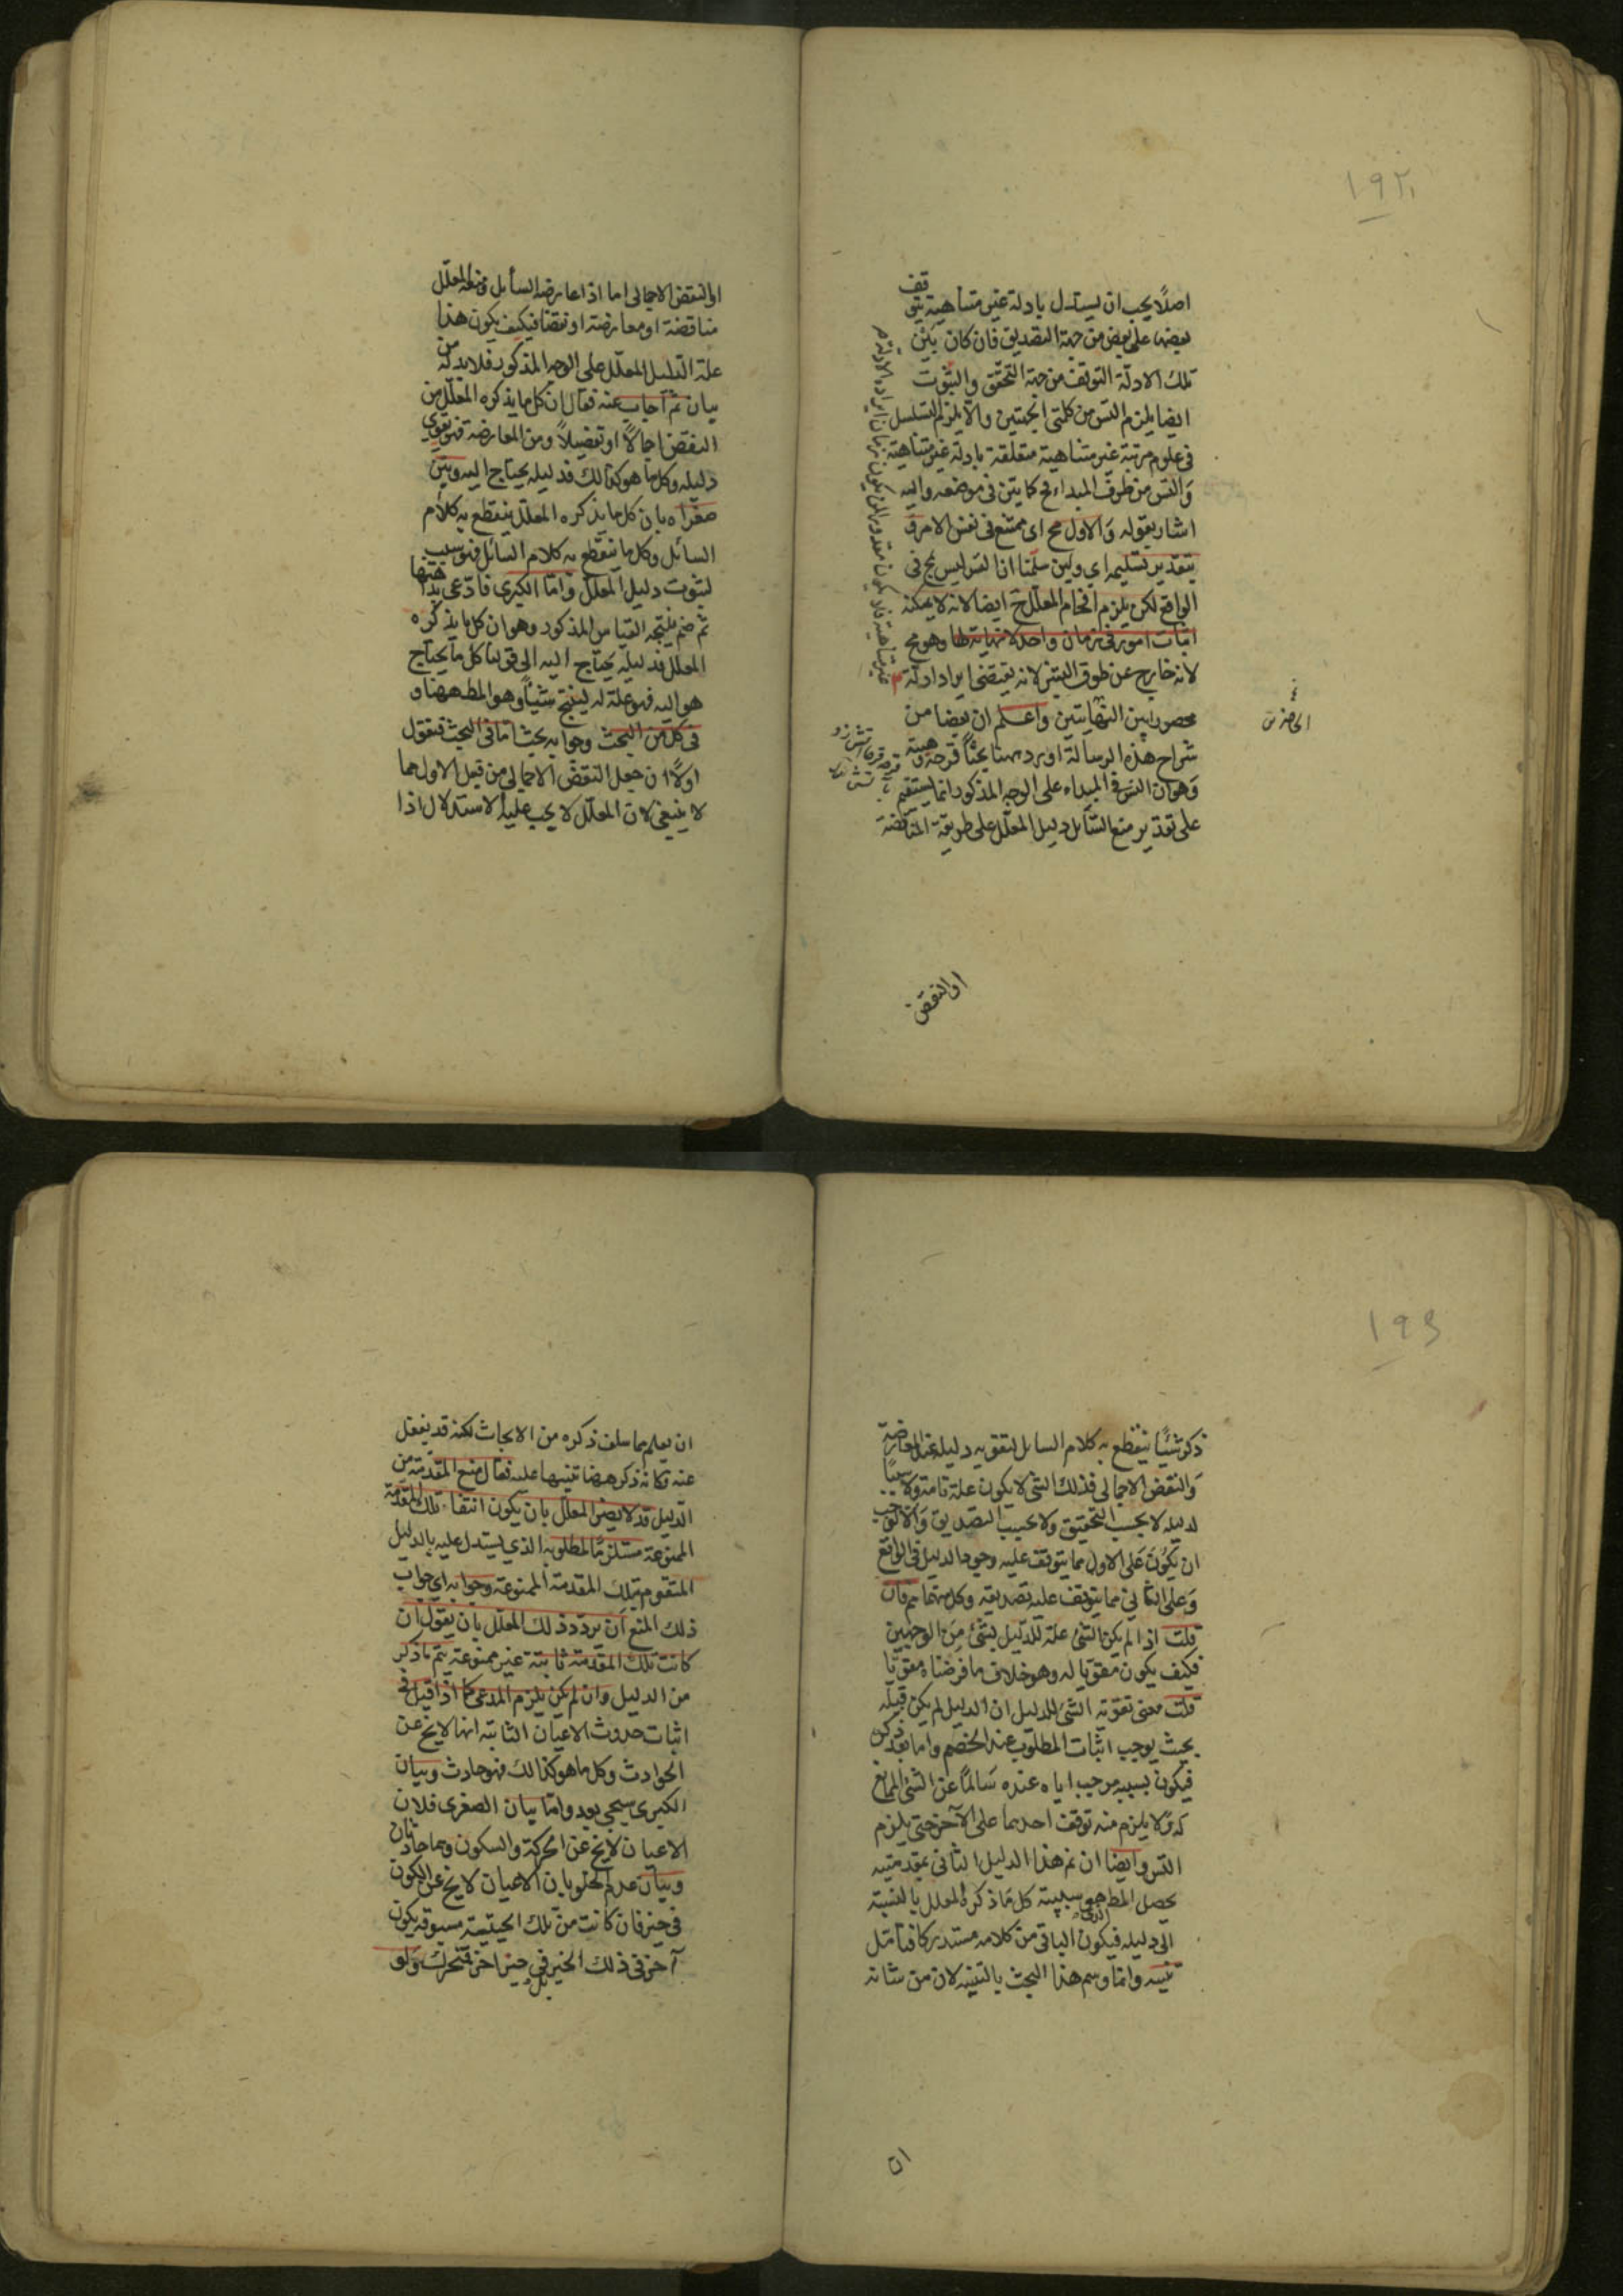 ١٩٢
اصلا يجب ان يستدل بادلة غير متناهية يتوقف
بعضها على بعض من جهة التصديق فان كان بين
تلك الادلة التوقف من جهة التحقق والثبوت
ايضا يلزم التس من كلتى الجهتين والا يلزم التسلسل
فى علوم مرتبة غير متناهية متعلقة بادلة غير متناهية
والتس من طرف المبداء مح كما بين فى موضعه واليه
اشار بقوله والاول مح اى ممتنع فى نفس الامر و
بتقدير تسليمه اي ولئن سلمنا ان التس ليس بمح فى
الواقع لكن يلزم افحام المعلل ح ايضا لانه لا يمكنه
اثبات امور فى زمان واحد لا نهاية لها وهو مح
لانه خارج عن طوق البشر لانه يقتضى ايراد ادلة
محصورا بين النهايتين واعلم ان بعضا من
شراح هذه الرسالة اورد ههنا بحثا
وهو ان التس فى المبداء على الوجه المذكور انما يستقيم
على تقدير منع السائل دليل المعلل على طريقة المناقضة
او النقض
او النقض الاجمالى اما اذا عارضه السائل ومنعه المعلل
مناقضة او معارضة او نقضا فكيف يكون هذا
علة لدليل المعلل على الوجه المذكور فلا بد له من
بيان ثم اجاب عنه فقال ان كل ما يذكره المعلل من
النقض اجمالا او تفصيلا ومن المعارضة فهو يقوى
دليله وكل ما هو كذالك فدليله يحتاج اليه وبين
صغراه بان كل ما يذكره المعلل ينقطع به كلام
السائل وكل ما ينقطع به كلام السائل فهو سبب
لثبوت دليل المعلل واما الكبرى فادعى بداهتها
ثم ضم نتيجة القياس المذكور وهو ان كل ما يذكره
المعلل فدليله يحتاج اليه الى قولنا كل ما يحتاج
هو اليه فهو علة له لينتج شيئا وهو المط ههنا و
فى كل من البحث وجوابه بحث اما فى البحث فنقول
اولا ان جعل النقض الاجمالى من قبل الاول مما
لا ينبغى لان المعلل لا يجب عليه الاستدلال اذا
١٩٣
ذكر شيئا ينقطع به كلام السائل لتقويه دليله عند المعارضة
والنقض الاجمالى فذلك الشئ لا يكون علة تامة ولا سببا
لدليله لا بحسب التحقيق ولا بحسب التصديق والا لوجب
ان يكون على الاول مما يتوقف عليه وجود الدليل فى الواقع
وعلى الثانى مما يتوقف عليه تصديقه وكل منهما مم فان
قلت اذا لم يكن الشئ علة للدليل بشئ من الوجهين
فكيف يكون مقويا له وهو خلاف ما فرضناه مقويا
قلت معنى تقوية الشئ للدليل ان الدليل لم يكن قبله
بحيث يوجب اثبات المطلوب عند الخصم واما بعد ذكره
فيكون بسببه موجب اياه عنده سالما عن الشئ المانع
له ولا يلزم منه توقف احدهما على الاخر حتى يلزم
التس وايضا ان تم هذا الدليل الثانى بمقدمتيه
يحصل المط سببية كل ما ذكره المعلل بالنسبة
الى دليله فيكون الباقى من كلامه مستدركا فتامل
تنبيه وانما وسم هذا البحث بالتنبيه لان من شانه
ان
ان يعلم مما سلف ذكره من الابحاث لكنه قد يغفل
عنه فكانه ذكر ههنا تنبيها عليه فقال منع المقدمة من
الدليل قد لا يضر المعلل بان يكون انتفاء تلك المقدمة
الممنوعة مستلزما لمطلوبه الذى يستدل عليه بالدليل
المتقوم بتلك المقدمة الممنوعة وجوابه اى جواب
ذلك المنع ان يردد ذلك المعلل بان يقول ان
كانت تلك المقدمة ثابتة غير ممنوعة يتم ما ذكر
من الدليل وان لم يكن يلزم المدعى كما اذا قيل فى
اثبات حدوث الاعيان الثابتة انها لا يخ عن
الحوادث وكل ما هو كذالك فهو حادث وبيان
الكبرى سيجى بعد واما بيان الصغرى فلان
الاعيان لا يخ عن الحركة والسكون وهما حادثان
وبيان عدم الخلو بان الاعيان لا يخ عن الكون
فى حيز فان كانت من تلك الحيثية مسبوقة بكون
آخر فى ذلك الحيز فى حيز اخر فتحرك ولو